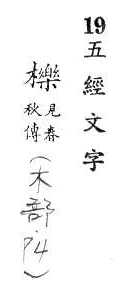 19五經文字
櫟見春秋傳(木部P.4)